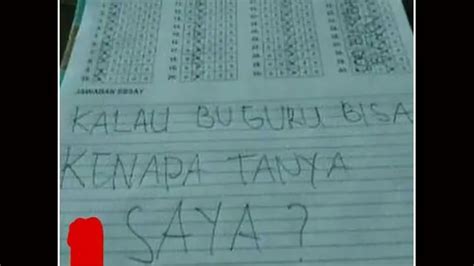 JAWABAN ESSAY
KALAU BU GURU BISA
KENAPA TANYA
SAYA?